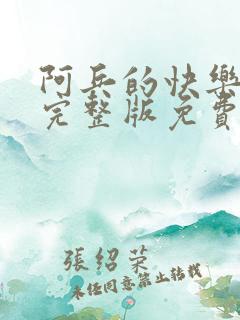 阿兵的快樂
完整版免費
張紹榮
未經同意禁止轉載